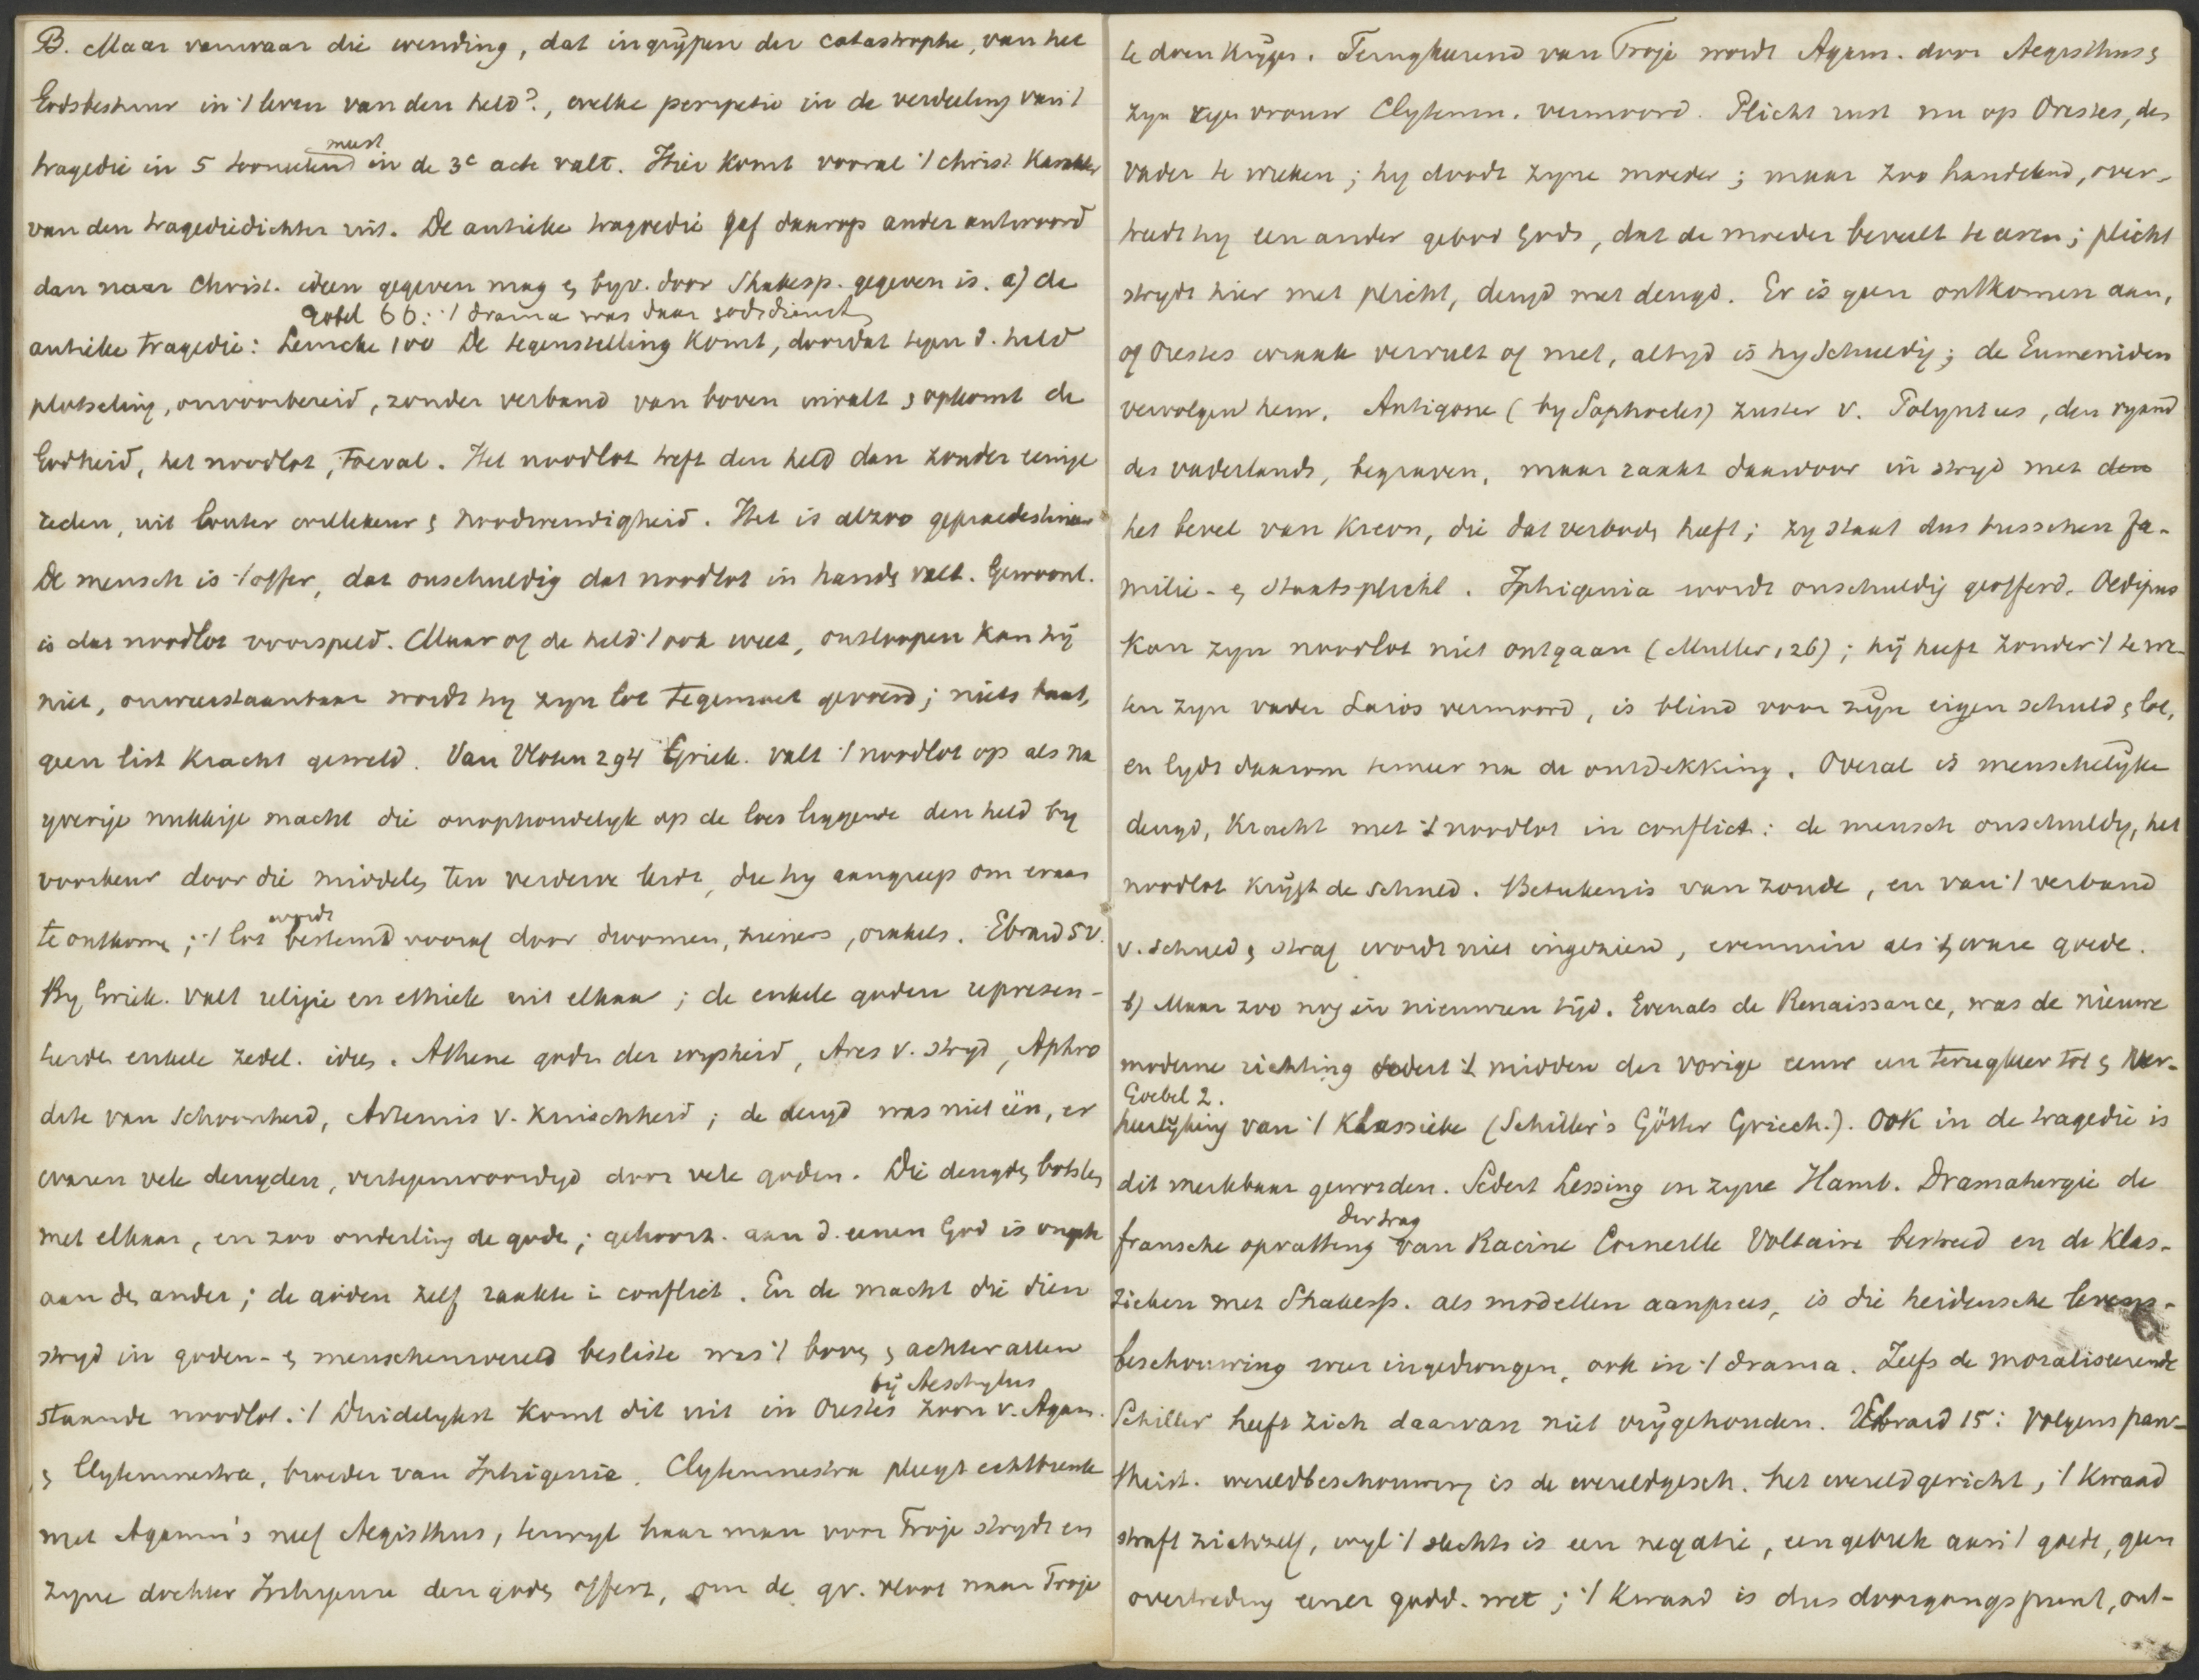 B. Maar vanwaar die wending, dat ingrijpen der catastrophe, van het
Godsbestuur in 't leven van den held?, welke peripetie in de verdeeling van 't
meest
tragedie in 5 tooneelen in de 3e acte valt. Hier komt vooral 't christ. Karakter
van den tragediedichter uit. De antieke tragoedie gaf daarop ander antwoord
dan naar Christ. ideen gegeven mag en byv. door Shakesp. gegeven is. a) de
Gobel 66: 't drama was daar godsdienst
antieke tragedie: Lemcke 100 De tegenstelling komt, doordat tegen d. held
plotseling, onvoorbereid, zonder verband van boven invalt en opkomt de
Godheid, het noodlot, toeval. Het noodlot treft den held dan zonder eenige
reden, uit louter willekeur en noodwendigheid. Het is alzoo gepraedestineer
De mensch is 't offer, dat onschuldig dat noodlot in handen valt. Gewoonl.
is dat noodlot voorspeld. Maar of de held 't ook weet, ontloopen kan hij
niet, onweerstaanbaar wordt hy zyn lot tegemoet gevoerd; niets baat,
geen list kracht geweld. Van Vloten 294 Griek. valt 't noodlot op als na
yverige nukkige macht die onophoudelyk op de loer liggende den held by
voorkeur door die middelen ten verderve leidt, die hy aangreep om eraan
wordt
te ontkome; 't lot bestemd vooraf door droomen, zieners, orakels. Ebrard 5v.
By Griek. valt religie en ethiek uit elkaar; de enkele goden represen-
teerden enkele zedel. idees. Athene godin der wysheid, Ares v. stryd, Aphro
dite van schoonheid, Artemis v. kuischheid; de deugd was niet één, er
waren vele deugden, vertegenwoordigd door vele goden. Die deugden botsten
met elkaar, en zoo onderling de goden; gehoorz. aan d. eenen God is ongeh
aan den ander; de goden zelf raakten in conflict. En de macht die dien
stryd in goden- en menschenwereld besliste was 't boven en achter allen
bij Aeschylus
staande noodlot. 't Duidelykst komt dit uit in Orestes zoon v. Agam.
en Clytemnestra, broeder van Iphigenia. Clytemnestra pleegt echtbreuk
met Agamn's neef Aegisthus, terwyl haar man voor Troje strydt en
zyne dochter Iphigenia den goden offert, om de gr. vloot naar Troje
te doen krijgen. Terugkeerend van Troje wordt Agam. door Aegisthus en
zyn eigen vrouw Clytemn. vermoord. Plicht rust nu op Orestes, den
vader te wreken; hy doodt zyne moeder; maar zoo handelend, over-
treedt hy een ander gebod Gods, dat de moeder beveelt te eeren; plicht
strydt hier met plicht, deugd met deugd. Er is geen ontkomen aan,
of Orestes wraak vervult of niet, altyd is hy schuldig; de Eumeniden
vervolgen hem. Antigone (by Sophocles) zuster v. Polynices, den vyand
des vaderlands, begraven, maar raakt daardoor in stryd met den
het bevel van Kreon, die dat verboden heeft; zy staat dus tusschen fa-
milie- en staatsplicht. Iphigenia wordt onschuldig geofferd. Oedipus
kon zyn noodlot niet ontgaan (Muller, 26); hij heeft zonder 't te we-
ten zyn vader Laios vermoord, is blind voor zijn eigen schuld en lot,
en lydt daarom temeer na de ontdekking. Overal is menschelijke
deugd, kracht met 't noodlot in conflict: de mensch onschuldig, het
noodlot krijgt de schuld. Beteekenis van zonde, en van 't verband
v. schuld en straf wordt niet ingezien, evenmin als 't ware goede.
b) Maar zoo nog in nieuweren tijd. Evenals de Renaissance, was de nieuwe
moderne richting sedert 't midden der vorige eeuw een terugkeer tot en ver-
Goebel 2.
heerlijking van 't Klassieke (Schiller's Götter Griech.). Ook in de tragedie is
dit merkbaar geworden. Sedert Lessing in zyne Hamb. Dramaturgie de
der trag
fransche opvatting van Racine Corneille Voltaire bestreed en de Klas-
sieken met Shakesp. als modellen aanprees, is die heidensche levens-
beschouwing weer ingedrongen, ook in 't drama. Zelfs de moraliseerende
Schiller heeft zich daarvan niet vrijgehouden. Ebrard 15: Volgens pan-
theist. wereldbeschouwing is de wereldgesch. het wereldgericht, 't Kwaad
straft zichzelf, wyl 't slechts is een negatie, een gebrek aan 't goede, geen
overtreding eener godd. wet; 't Kwaad is dus doorgangspunt, ont-